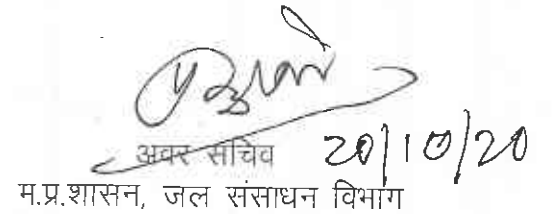 अवर सचिव 20/10/20
म.प्र.शासन, जल संसाधन विभाग